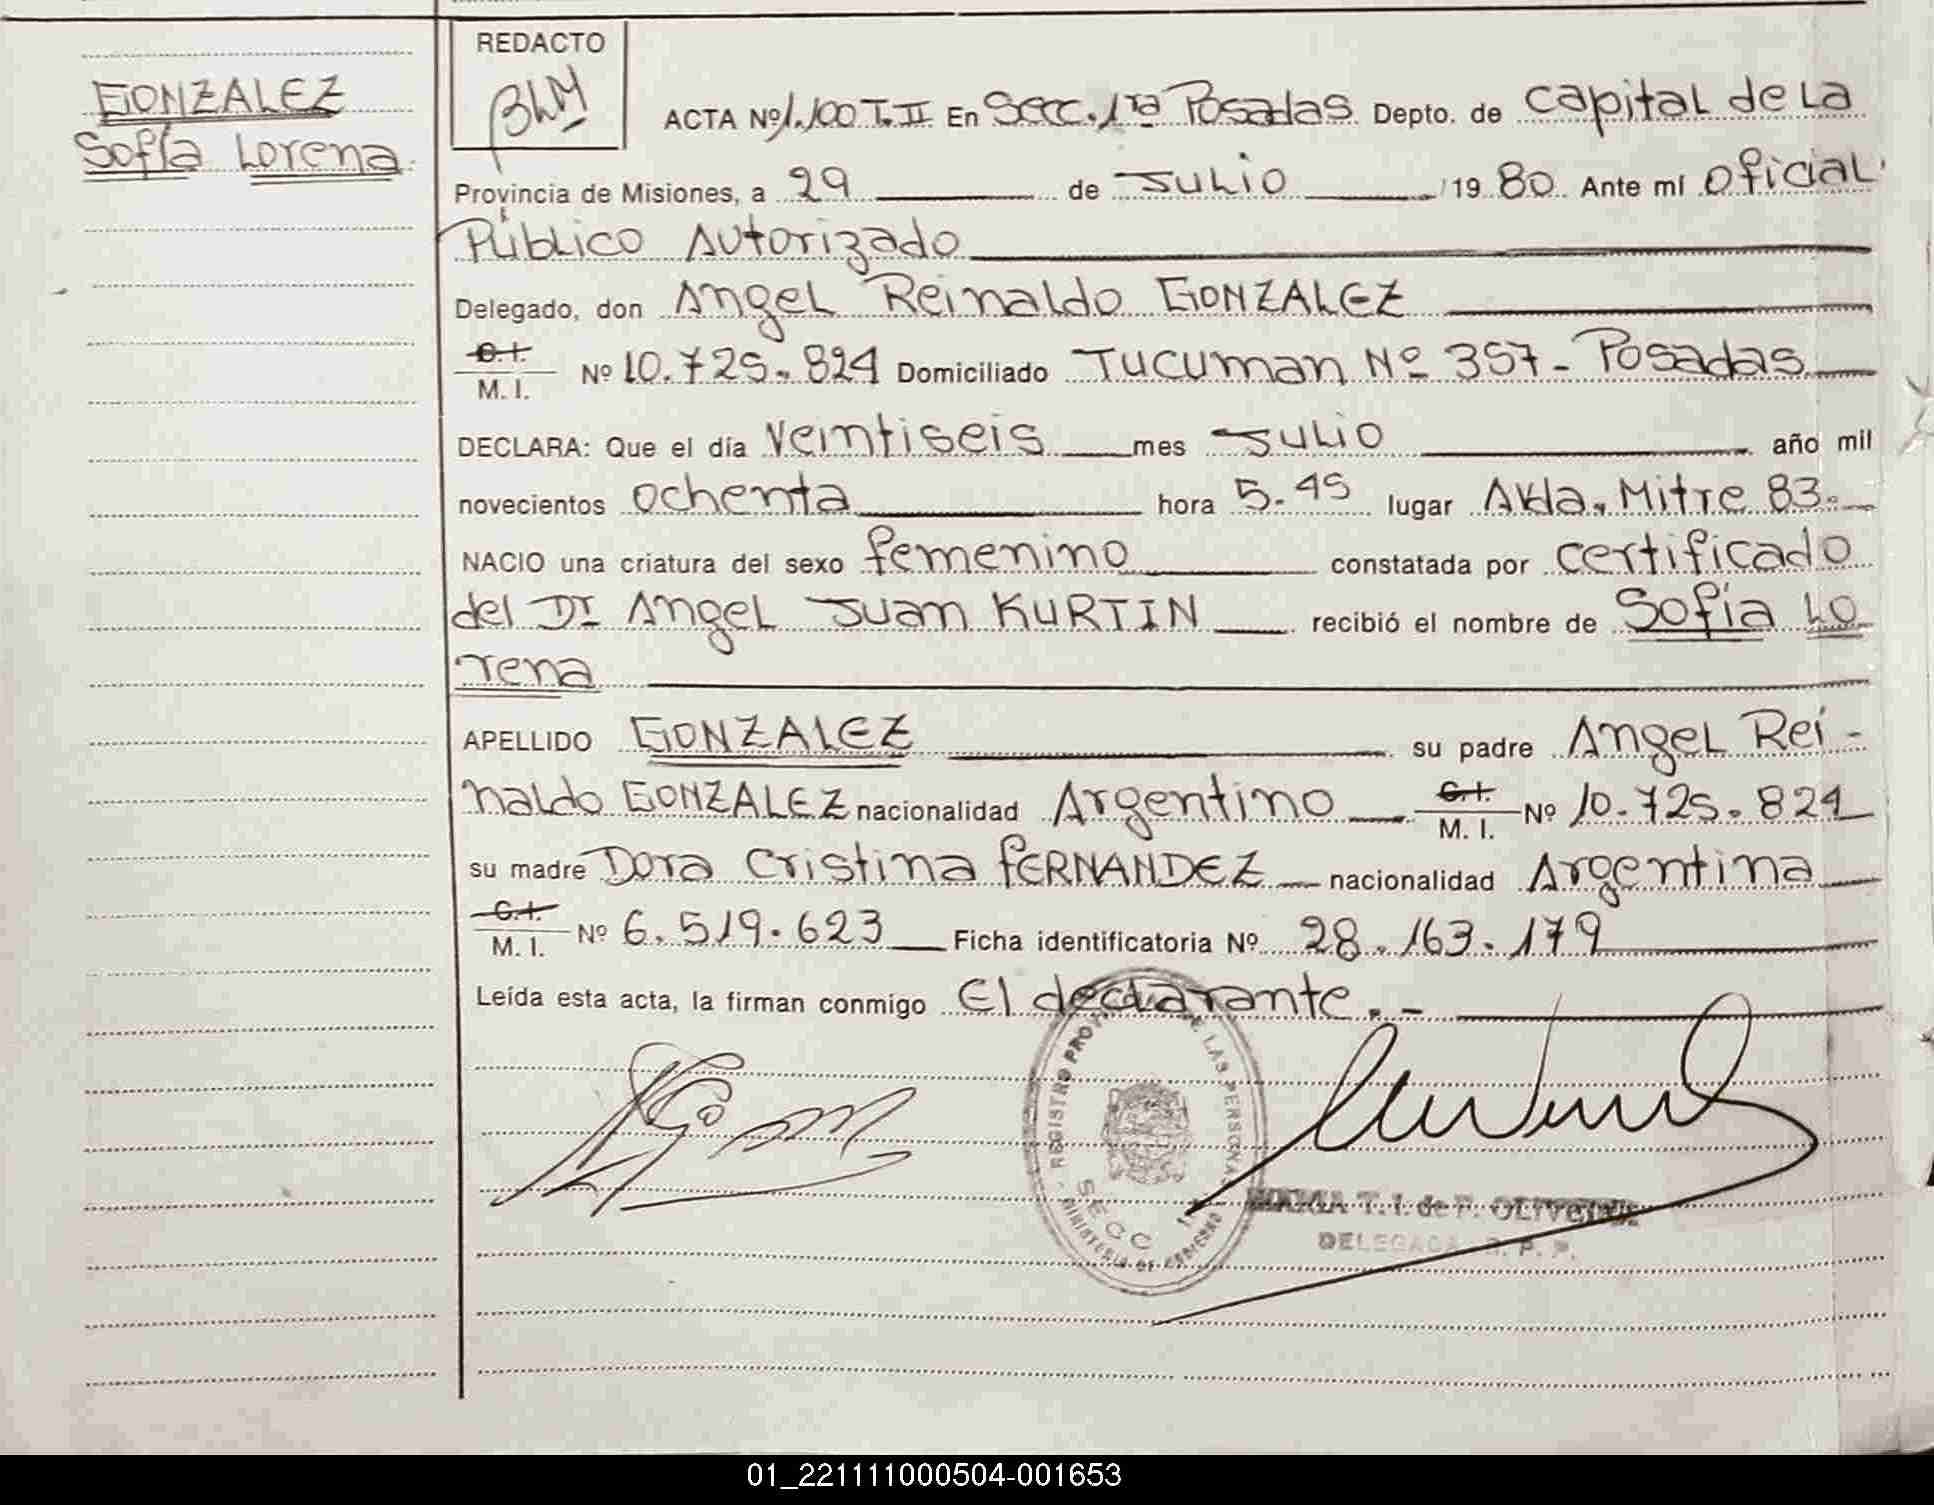 GONZALEZ
Sofía Lorena
REDACTO
BLM
ACTA Nº 1.100 T. II En Secc. 1ra Posadas Depto. de Capital de La
Provincia de Misiones, a 29 de Julio 19 80 Ante mí Oficial
Público Autorizado
Delegado, don Angel Reinaldo GONZALEZ
C. I. / M. I. Nº 10.725.824 Domiciliado Tucuman Nº 357 - Posadas
DECLARA: Que el día Veintiseis mes Julio año mil
novecientos ochenta hora 5.45 lugar Avda. Mitre 83.
NACIO una criatura del sexo femenino constatada por certificado
del Dr Angel Juan KURTIN recibió el nombre de Sofía Lo
rena
APELLIDO GONZALEZ su padre Angel Rei-
naldo GONZALEZ nacionalidad Argentino C. I. / M. I. Nº 10.725.824
su madre Dora Cristina FERNANDEZ nacionalidad Argentina
C. I. / M. I. Nº 6.519.623 Ficha identificatoria Nº 28.163.179
Leída esta acta, la firman conmigo El declarante.-
REGISTRO DE LAS PERSONAS
SECC
MINISTERIO DE GOBIERNO
T. I. de F. OLIVEIRA
DELEGADA R. P. P.
01_221111000504-001653